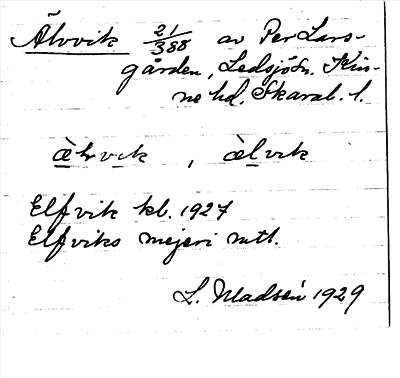 Älvvik 21/388 av Per Lars-
gården, Ledsjö sn. Kin-
ne hd. Skarab. l.
ä̀lvvik , ä̀lvik
Elfvik kb. 1927
Elfviks mejeri mtl.
L. Madsén 1929